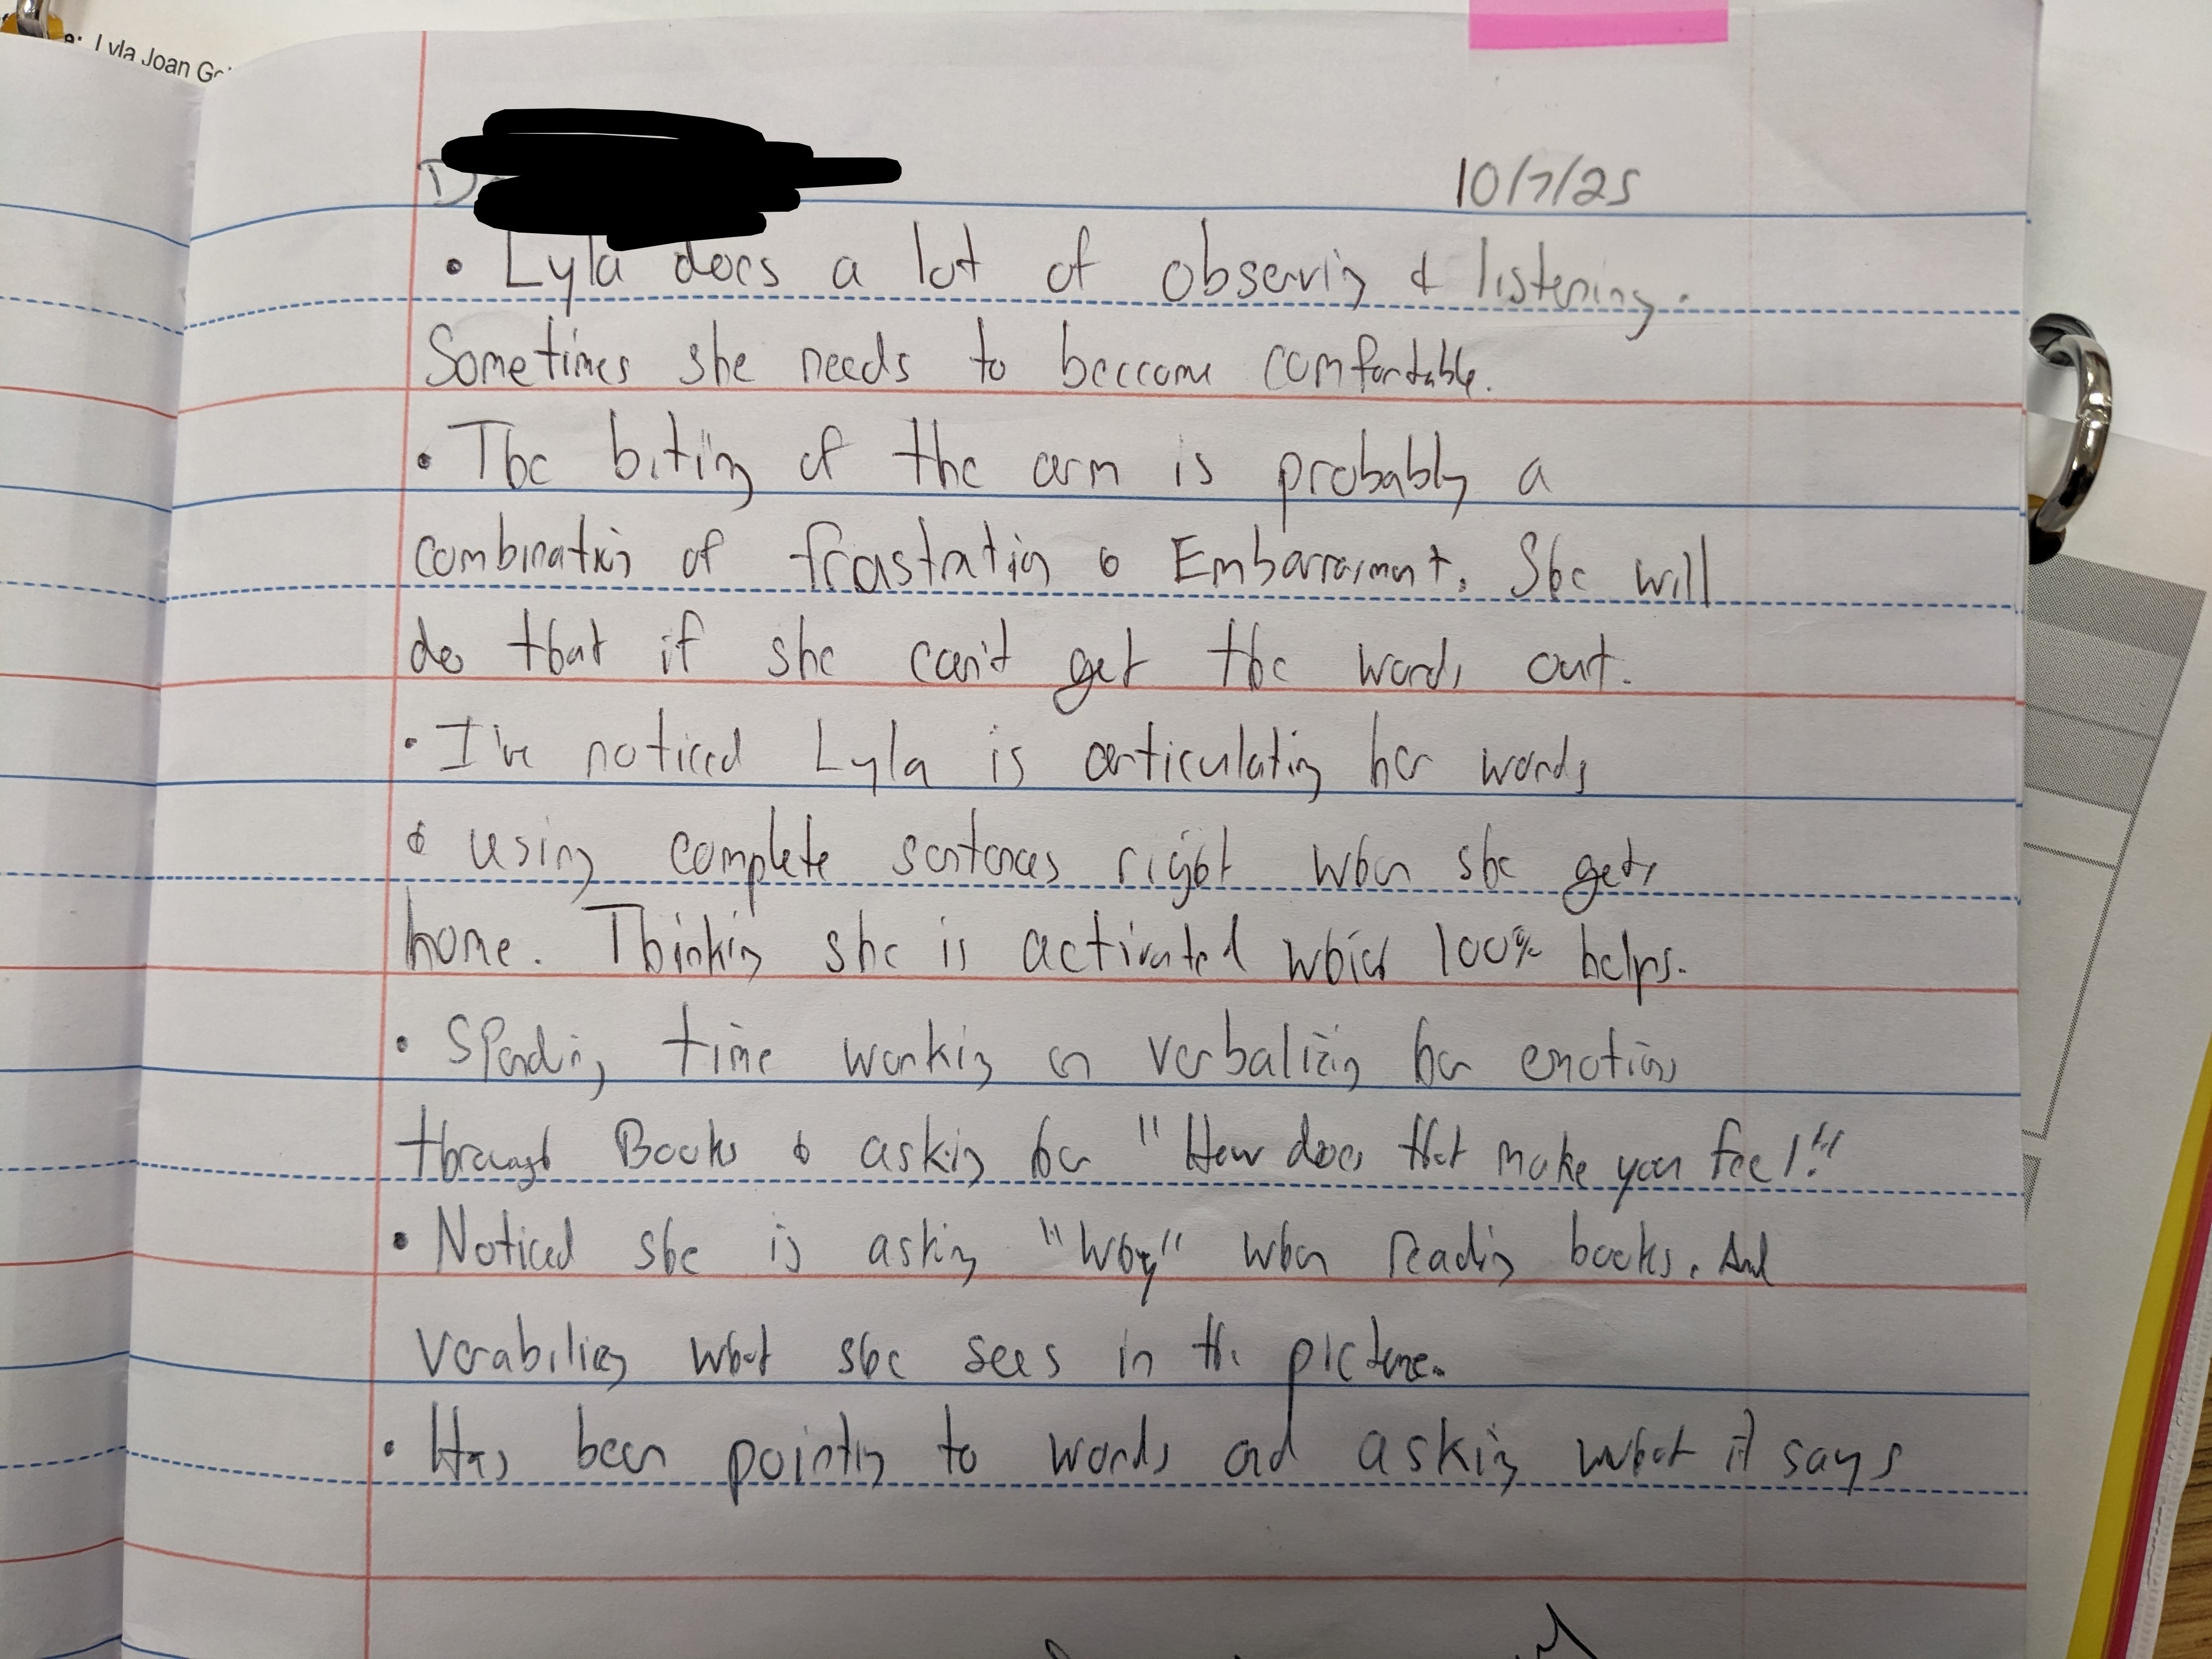 e: Lyla Joan
10/7/25
• Lyla does a lot of observing & listening.
Sometimes she needs to beccome comfordable.
• The biting of the arm is probably a
combination of frastration & Embarrasment. She will
do that if she can't get the words out.
• I've noticed Lyla is articulating her words
& using complete sentences right when she gets
home. Thinking she is activated which 100% helps.
• Spending time working on verbalizing her emotions
through Books & asking her "How does that make you feel!"
• Noticed she is asking "Why" when reading books. And
verabilizing what she sees in the picture.
• Has been pointing to words and asking what it says